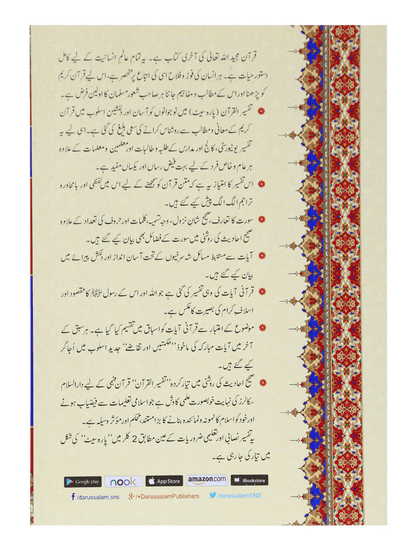 قرآن مجید اللہ تعالیٰ کی آخری کتاب ہے۔ یہ تمام عالم انسانیت کے لیے کامل
دستور حیات ہے۔ ہر انسان کی فوز و فلاح اسی کی اتباع پر منحصر ہے، اس لیے قرآن کریم
کو پڑھنا اور اس کے مطالب و مفاہیم جاننا ہر صاحب شعور مسلمان کا اولین فرض ہے۔
تفسیر القرآن (پارہ سیٹ) میں نوجوانوں کو آسان اور دلنشین اسلوب میں قرآن
کریم کے معانی و مطالب سے روشناس کرانے کی سعی بلیغ کی گئی ہے۔ اسی لیے یہ
تفسیر یونیورسٹی، کالج اور مدارس کے طلبہ و طالبات اور معلمین و معلمات کے علاوہ
ہر عام و خاص فرد کے لیے بہت فیض رساں اور یکساں مفید ہے۔
اس تفسیر کا امتیاز یہ ہے کہ متن قرآن کو سمجھنے کے لیے اس میں لفظی اور بامحاورہ
تراجم الگ الگ پیش کیے گئے ہیں۔
سورت کا تعارف، صحیح شان نزول، وجہ تسمیہ، کلمات اور حروف کی تعداد کے علاوہ
صحیح احادیث کی روشنی میں سورت کے فضائل بھی بیان کیے گئے ہیں۔
آیات سے مستنبط مسائل شہ سرخیوں کے تحت آسان انداز اور دلکش پیرائے میں
بیان کیے گئے ہیں۔
قرآنی آیات کی وہی تفسیر کی گئی ہے جو اللہ اور اس کے رسول ﷺ کا مقصود اور
اسلاف کرام کی بصیرت کا عکس ہے۔
موضوع کے اعتبار سے قرآنی آیات کو اسباق میں تقسیم کیا گیا ہے۔ ہر سبق کے
آخر میں آیات مبارکہ کی ماخوذ ’’حکمتیں اور تقاضے‘‘ جدید اسلوب میں اُجاگر
کیے گئے ہیں۔
صحیح احادیث کی روشنی میں تیار کردہ ’’تفسیر القرآن‘‘ قرآن فہمی کے لیے دارالسلام
سکالرز کی نہایت خوبصورت علمی کاوش ہے جو اسلامی تعلیمات سے فیضیاب ہونے
اور خود کو اسلام کا نمونہ و نمائندہ بنانے کا بڑا مستند، محکم اور مؤثر وسیلہ ہے۔
یہ تفسیر نصابی اور تعلیمی ضروریات کے عین مطابق 2 کلر میں ’’پارہ سیٹ‘‘ کی شکل
میں تیار کی جا رہی ہے۔
Google play nook App Store amazon.com iBookstore
/darussalam.sns /+DarussalamPublishers /darussalamSNS